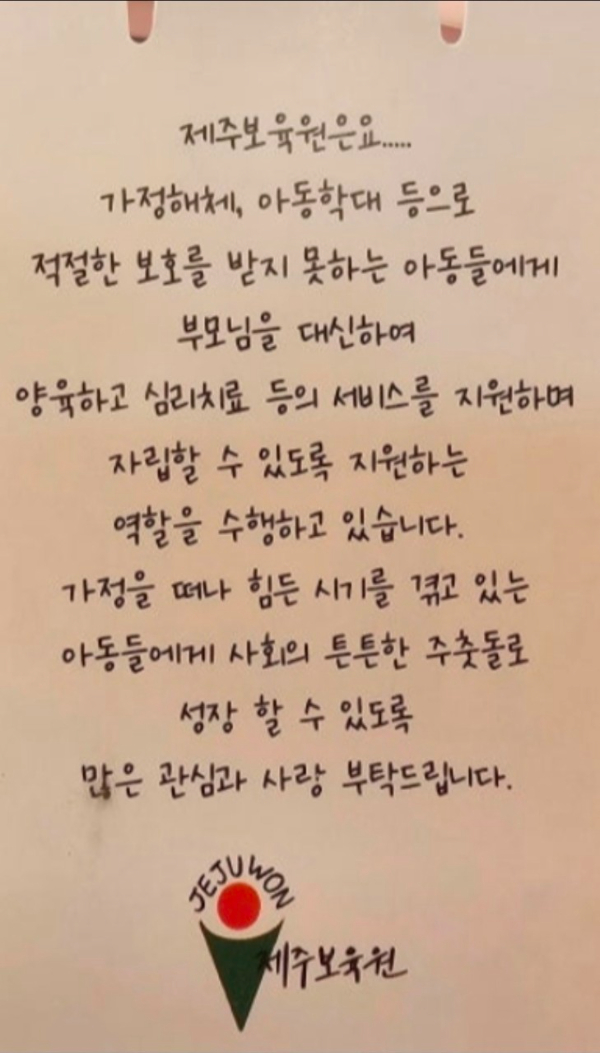 제주보육원은요.....
가정해체, 아동학대 등으로
적절한 보호를 받지 못하는 아동들에게
부모님을 대신하여
양육하고 심리치료 등의 서비스를 지원하며
자립할 수 있도록 지원하는
역할을 수행하고 있습니다.
가정을 떠나 힘든 시기를 겪고 있는
아동들에게 사회의 튼튼한 주춧돌로
성장 할 수 있도록
많은 관심과 사랑 부탁드립니다.
JEJUWON
제주보육원